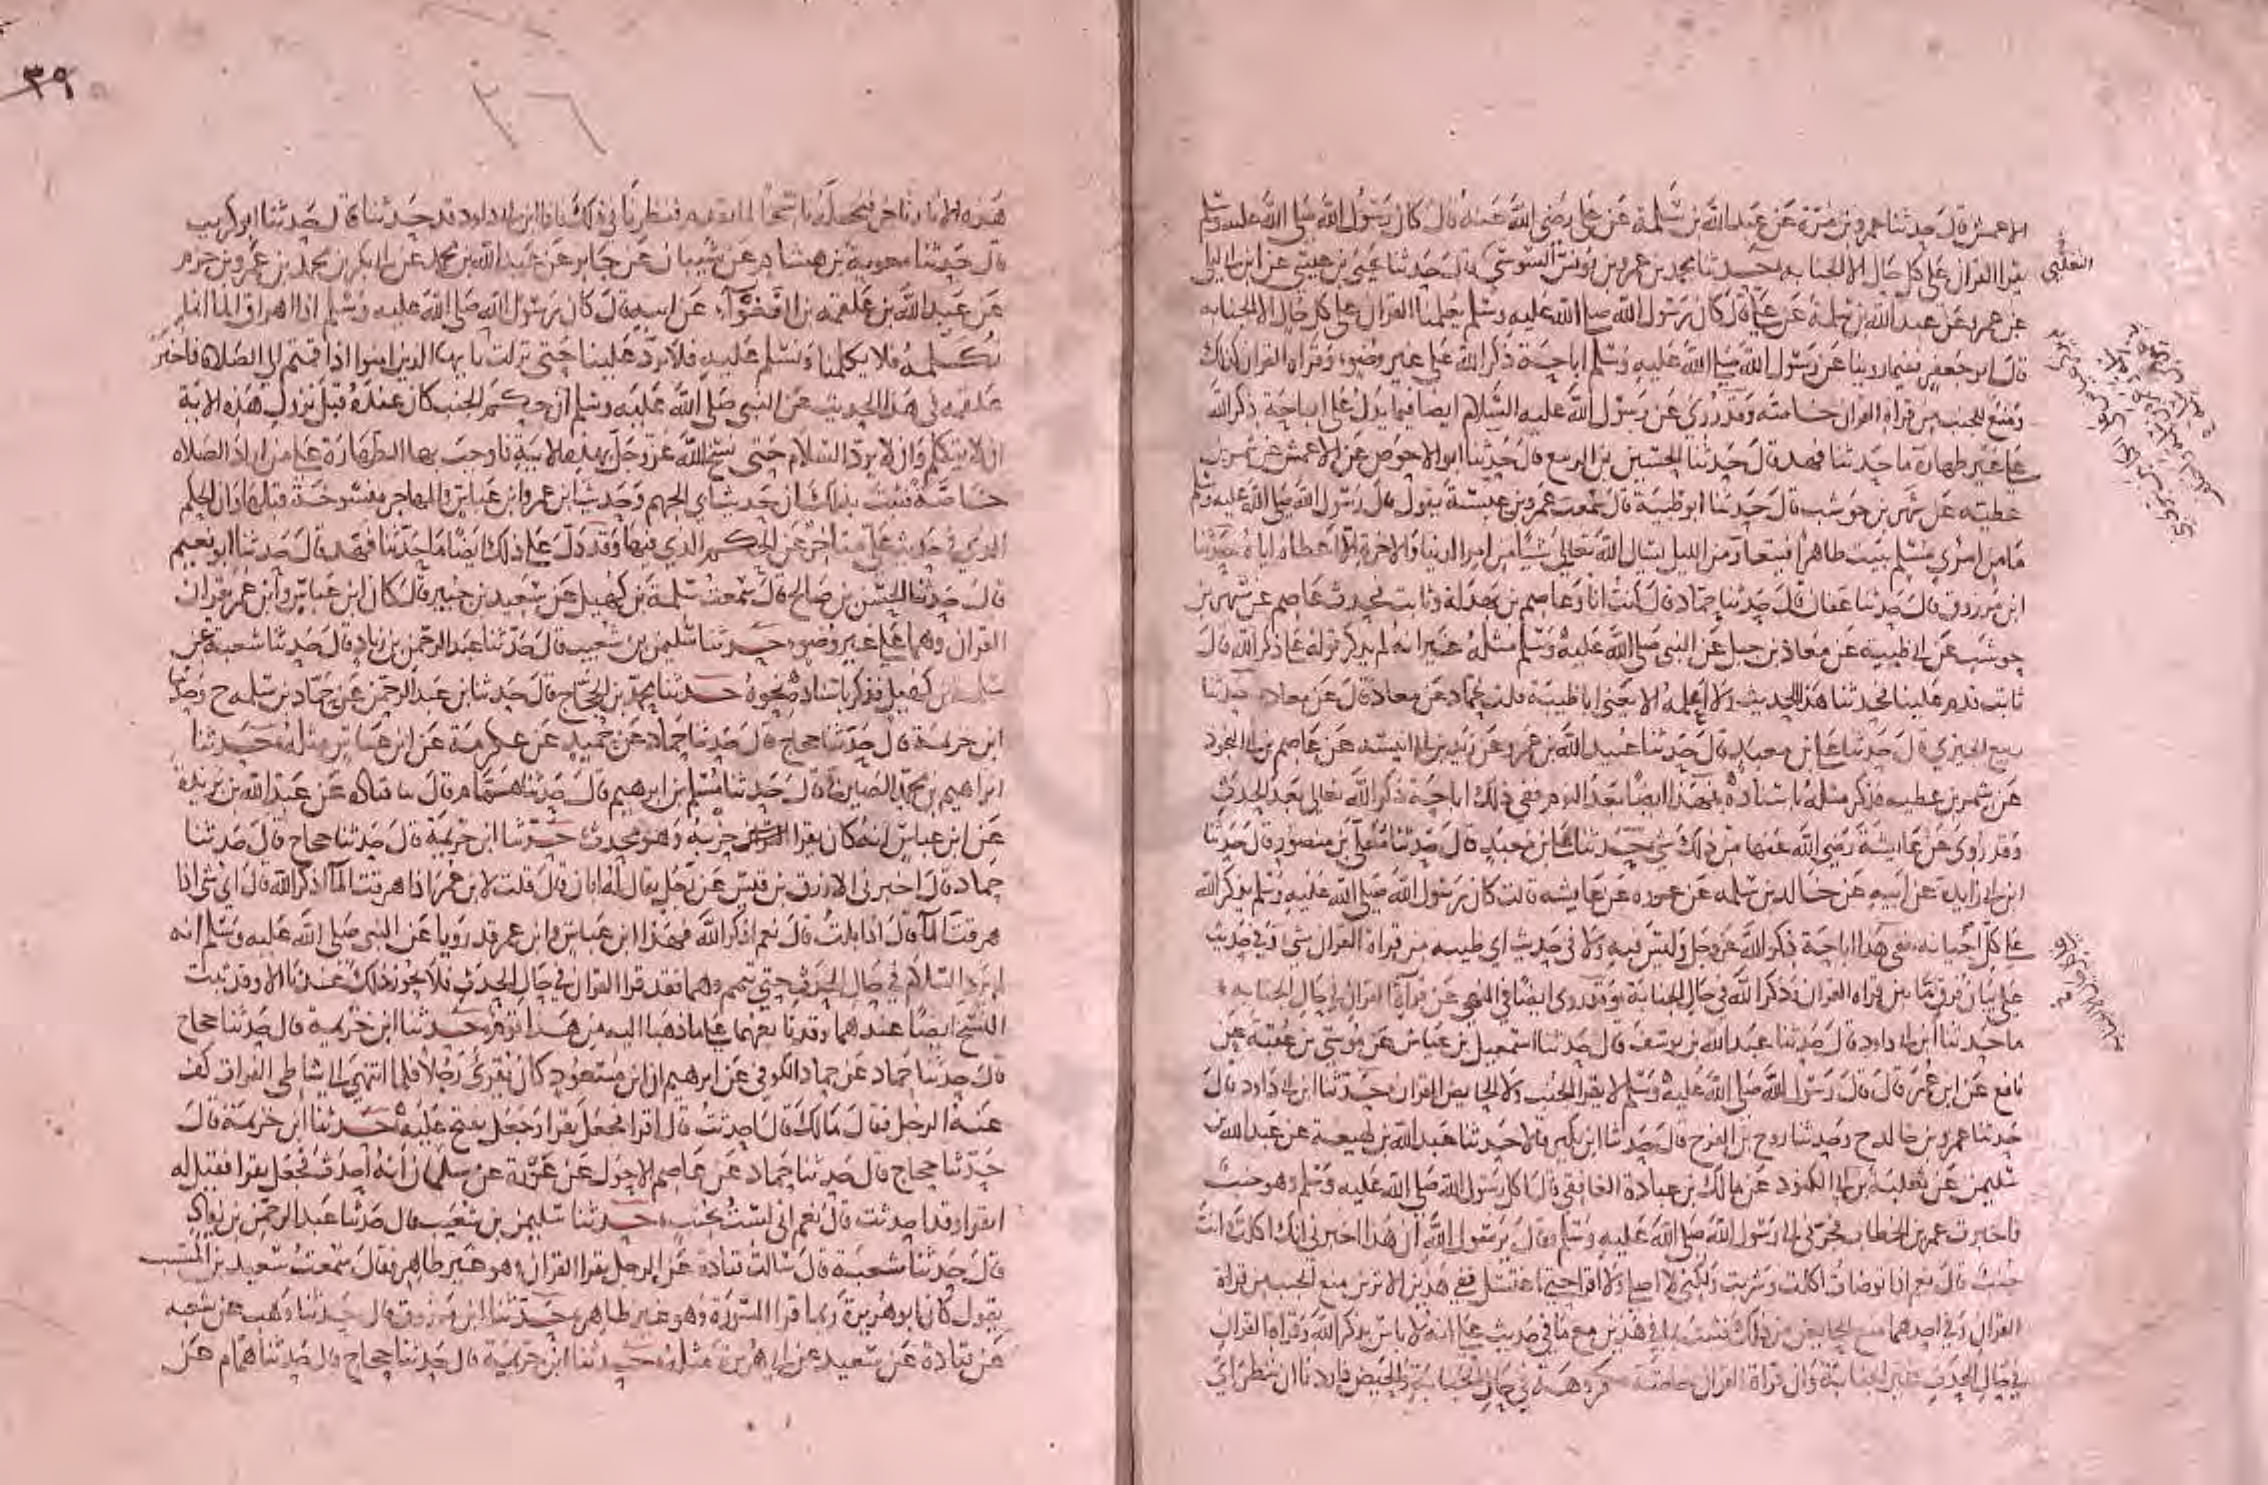 الاعمش قال حدثنا عمرو بن مرة عن عبد الله بن سلمة عن علي رضي الله عنه قال كان رسول الله صلى الله عليه وسلم
يقرا القران على كل حال الا الجنابه حدثنا محمد بن عمرو بن يونس السوسي قال حدثنا يحيى بن عيسى عن ابن ابي ليلى
عن عمرو عن عبد الله بن سلمة عن علي قال كان رسول الله صلى الله عليه وسلم يعلمنا القران على كل حال الا الجنابه
قال ابو جعفر ففيما روينا عن رسول الله صلى الله عليه وسلم اباحة ذكر الله على غير وضوء وقراه القران كذلك
ومنع للجنب من قراه القران خاصته وقد روي عن رسول الله عليه السلام ايضا فيما يدل على اباحة ذكر الله
على غير طهارة ما حدثنا فهد قال حدثنا الحسين بن الربيع قال حدثنا ابو الاحوص عن الاعمش عن شمر بن
عطيته عن شهر بن حوشب قال حدثنا ابو ظبية قال سمعت عمرو بن عبسة يقول قال رسول الله صلى الله عليه وسلم
ما من امرئ مسلم يبيت طاهرا فيتعار من الليل يسال الله تعالى شيا من امر الدنيا والاخرة الا اعطاه اياه حدثنا
ابن مرزوق قال حدثنا عفان قال حدثنا حماد قال كنت انا وعاصم بن بهدلة وثابت فحدث عاصم عن شهر بن
حوشب عن ابي ظبية عن معاذ بن جبل عن النبي صلى الله عليه وسلم مثله غير انه لم يذكر قوله على ذكر الله قال
ثابت قدم علينا فحدثنا هذا الحديث ولا اعلمه الا يعني ابا ظبية قلت لحماد عن معاذ قال عن معاذ حدثنا
ربيع الجيزي قال حدثنا علي بن معبد قال حدثنا عبيد الله بن عمرو عن زيد بن ابي انيسه عن عاصم بن ابي النجود
عن شمر بن عطيه فذكر مثله باسناده فهذا ايضا بعد النوم ففي ذلك اباحة ذكر الله تعالى بعد الحدث
وقد روي عن عايشة رضي الله عنها من ذلك شي حدثنا علي بن معبد قال حدثنا معلى بن منصور قال حدثنا
ابن ابي زايدة عن ابيه عن خالد بن سلمه عن عروه عن عايشه قالت كان رسول الله صلى الله عليه وسلم يذكر الله
على كل احيانه ففي هذا اباحة ذكر الله عز وجل وليس فيه ولا في حديث ابي ظبيه من قراة القران شي وفي حديث
علي بيان فرق ما بين قراه القران وذكر الله في حال الجنابة وقد روي ايضا في النهي عن قراة القران في حال الجنابه
ما حدثنا ابن ابي داود قال حدثنا عبد الله بن يوسف قال حدثنا اسمعيل بن عياش عن موسى بن عقبة عن
نافع عن ابن عمر قال قال رسول الله صلى الله عليه وسلم لا يقرا الجنب ولا الحايض القران حدثنا ابن ابي داود قال
حدثنا عمرو بن خالد ح وحدثنا روح بن الفرج قال حدثنا ابن بكير قالا حدثنا عبد الله بن لهيعة عن عبد الله بن
سليمن عن ثعلبة بن ابي الكنود عن مالك بن عبادة الغافقي قال اكل رسول الله صلى الله عليه وسلم وهو جنب
فاخبرت عمر بن الخطاب فجرني الى رسول الله صلى الله عليه وسلم فقال يا رسول الله ان هذا اخبرني انك اكلت وانت
جنب قال نعم اذا توضات اكلت وشربت ولكني لا اصلي ولا اقرا حتى اغتسل ففي هذين الاثرين منع الجنب من قراة
القران وفي احدهما منع الحايض من ذلك فثبت بما في هذين مع ما في حديث علي انه لا باس بذكر الله وقراة القران
في حال الحدث غير الجنابة وان قراة القران خاصة مكروهة في حال الجنابة والحيض فاردنا ان ننظر اي
الثعلبي
٣٩
٣٦
هذه الاثار تاخر فنجعله ناسخا لما تقدم فنظرنا في ذلك فاذا ابن ابي داود قد حدثنا قال حدثنا ابو كريب
قال حدثنا معوية بن هشام عن شيبان عن جابر عن عبد الله بن محمد عن ابي بكر بن محمد بن عمرو بن حزم
عن عبد الله بن علقمه بن الفغواء عن ابيه قال كان رسول الله صلى الله عليه وسلم اذا اهراق الما انما
نكلمه فلا يكلمنا ونسلم عليه فلا يرد علينا حتى نزلت يايها الذين امنوا اذا قمتم الى الصلاة فاخبر
علقمه في هذا الحديث عن النبي صلى الله عليه وسلم ان حكم الجنب كان عنده قبل نزول هذه الاية
ان لا يتكلم وان لا يرد السلام حتى نسخ الله عز وجل بهذه الاية فاوجب بها الطهارة على من اراد الصلاه
خاصة فثبت بذلك ان حديث ابي الجهم وحديث ابن عمر وابن عباس والمهاجر منسوخة قبلها وان الحكم
الذي في حديث علي متاخر عن الحكم الذي فيها وقد دل على ذلك ايضا ما حدثنا فهد قال حدثنا ابو نعيم
قال حدثنا الحسن بن صالح قال سمعت سلمة بن كهيل عن سعيد بن جبير قال كان ابن عباس وابن عمر يقران
القران وهما على غير وضوء حدثنا سليمن بن شعيب قال حدثنا عبد الرحمن بن زياد قال حدثنا شعبة عن
سلمة بن كهيل فذكر باسناده نحوه حدثنا محمد بن الحجاج قال حدثنا بن عبد الرحمن عن حماد بن سلمه ح وحدثنا
ابن خزيمة قال حدثنا حجاج قال حدثنا حماد عن حميد عن عكرمة عن ابن عباس مثله حدثنا
ابراهيم بن محمد الصيرفي قال حدثنا مسلم بن ابرهيم قال حدثنا همام قال ثنا قتاده عن عبد الله بن بريدة
عن ابن عباس انه كان يقرا حزبه وهو محدث حدثنا ابن خزيمة قال حدثنا حجاج قال حدثنا
حماد قال اخبرني الازرق بن قيس عن رجل يقال له ابان قال قلت لابن عمر اذا هرقت الما اذكر الله قال اي شي اذا
هرقت الما قال اذا بلت قال نعم اذكر الله فهذا ابن عباس وابن عمر قد رويا عن النبي صلى الله عليه وسلم انه
لم يرد السلام في حال الحدث حتى تيمم وهما فقد قرا القران في حال الحدث فلا يجوز ذلك عندنا الا وقد ثبت
النسخ ايضا عندهما وقد تابعهما على ما ذهبنا اليه من هذا قوم حدثنا ابن خزيمة قال حدثنا حجاج
قال حدثنا حماد عن حماد الكوفي عن ابرهيم ان ابن مسعود كان يقرئ رجلا فلما انتهى الى شاطى الفرات كف
عنه الرجل فقال مالك قال احدثت قال اقرا فجعل يقرا وجعل يفتح عليه حدثنا ابن خزيمة قال
حدثنا حجاج قال حدثنا حماد عن عاصم الاحول عن عزرة عن سلمان انه احدث فجعل يقرا فقيل له
اتقرا وقد احدثت قال نعم اني لست بجنب حدثنا سليمن بن شعيب قال حدثنا عبد الرحمن بن زياد
قال حدثنا شعبة قال سالت قتادة عن الرجل يقرا القران وهو غير طاهر فقال سمعت سعيد بن المسيب
يقول كان ابو هريرة ربما قرا السورة وهو غير طاهر حدثنا ابن مرزوق قال حدثنا وهب عن شعبه
عن قتادة عن سعيد عن ابي هريرة مثله حدثنا ابن خزيمة قال حدثنا حجاج قال حدثنا همام عن